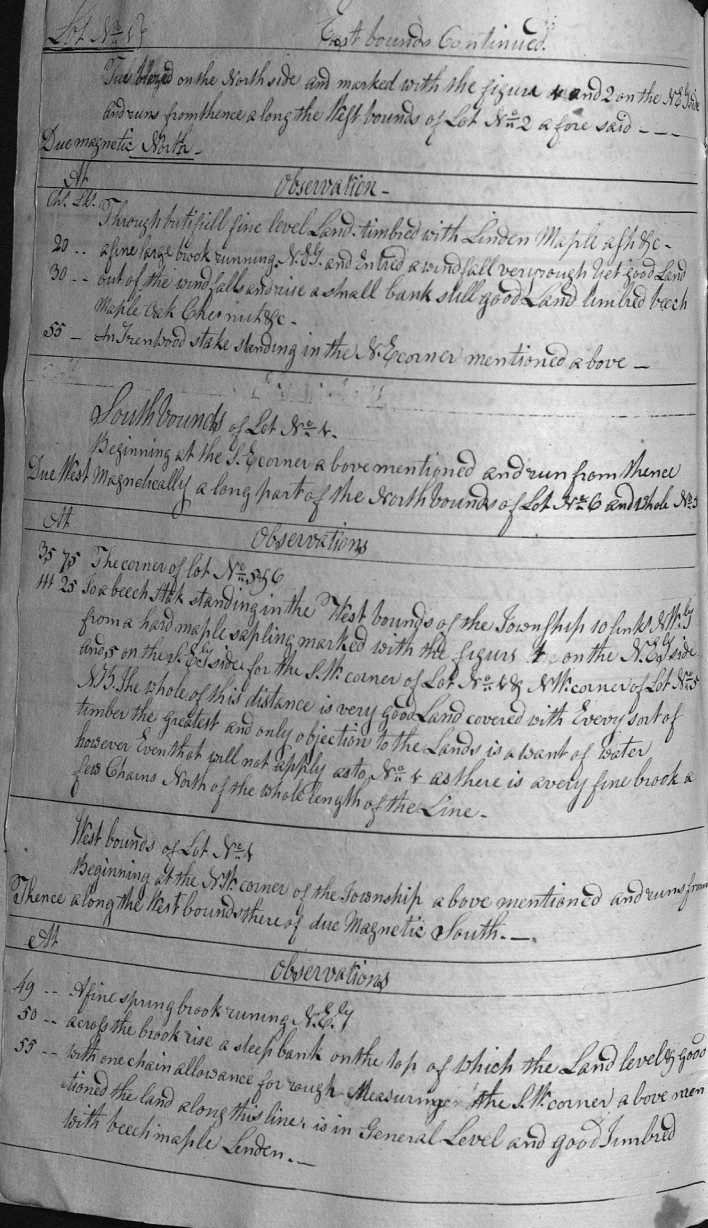 Lot No 1}
East bounds Continued.
Tree blazed on the North side and marked with the figure 1 and 2 on the N.E.ly side
and runs from thence along the West bounds of Lot No 2 afore said - - -
Due magnetic North -
At
Observation -
Chs. Lks.
Through butifull fine level Land timbred with Linden Maple ash &c -
20 .. a fine large brook running N.E.ly. and Entred a windfall very rough Yet good Land
30 .. out of the windfalls and rise a small bank still good Land timbred beech
Maple Oak Chesnut &c -
55 - An Irenwood stake standing in the N.E corner mentioned above -
South bounds of Lot No 1.
Beginning at the S.E corner above mentioned and run from thence
Due West Magnetically along part of the North bounds of Lot No 6 and whole No 5
At
Observations
35 75 The corner of lot No 5 & 6
44 25 To a beech Stak standing in the West bounds of the Township 10 links N.W.ly
from a hard maple sapling marked with the figure 1 on the N.E.ly side
and 5 on the S.E.ly side for the S.W. corner of Lot No 1 & N.W. corner of Lot No 5
N.B. The whole of this distance is very good Land covered with Evevy sort of
timber the greatest and only objection to the Lands is a want of water
however Even that will not apply as to No 1 as there is a very fine brook a
few Chains North of the whole length of the Line -
West bounds of Lot No 1
Beginning at the N.W. corner of the Township above mentioned and runs from
Thence along the West bounds there of due Magnetic South. -
At
Observations
49 .. A fine spring brook runing N.E.ly
50 .. across the brook rise a steep bank on the top of which the Land level & good
55 .. with one chain allowance for rough Measuring the S.W. corner above men
tioned the land along this line is in General Level and good Timbred
with beech maple Linden. -